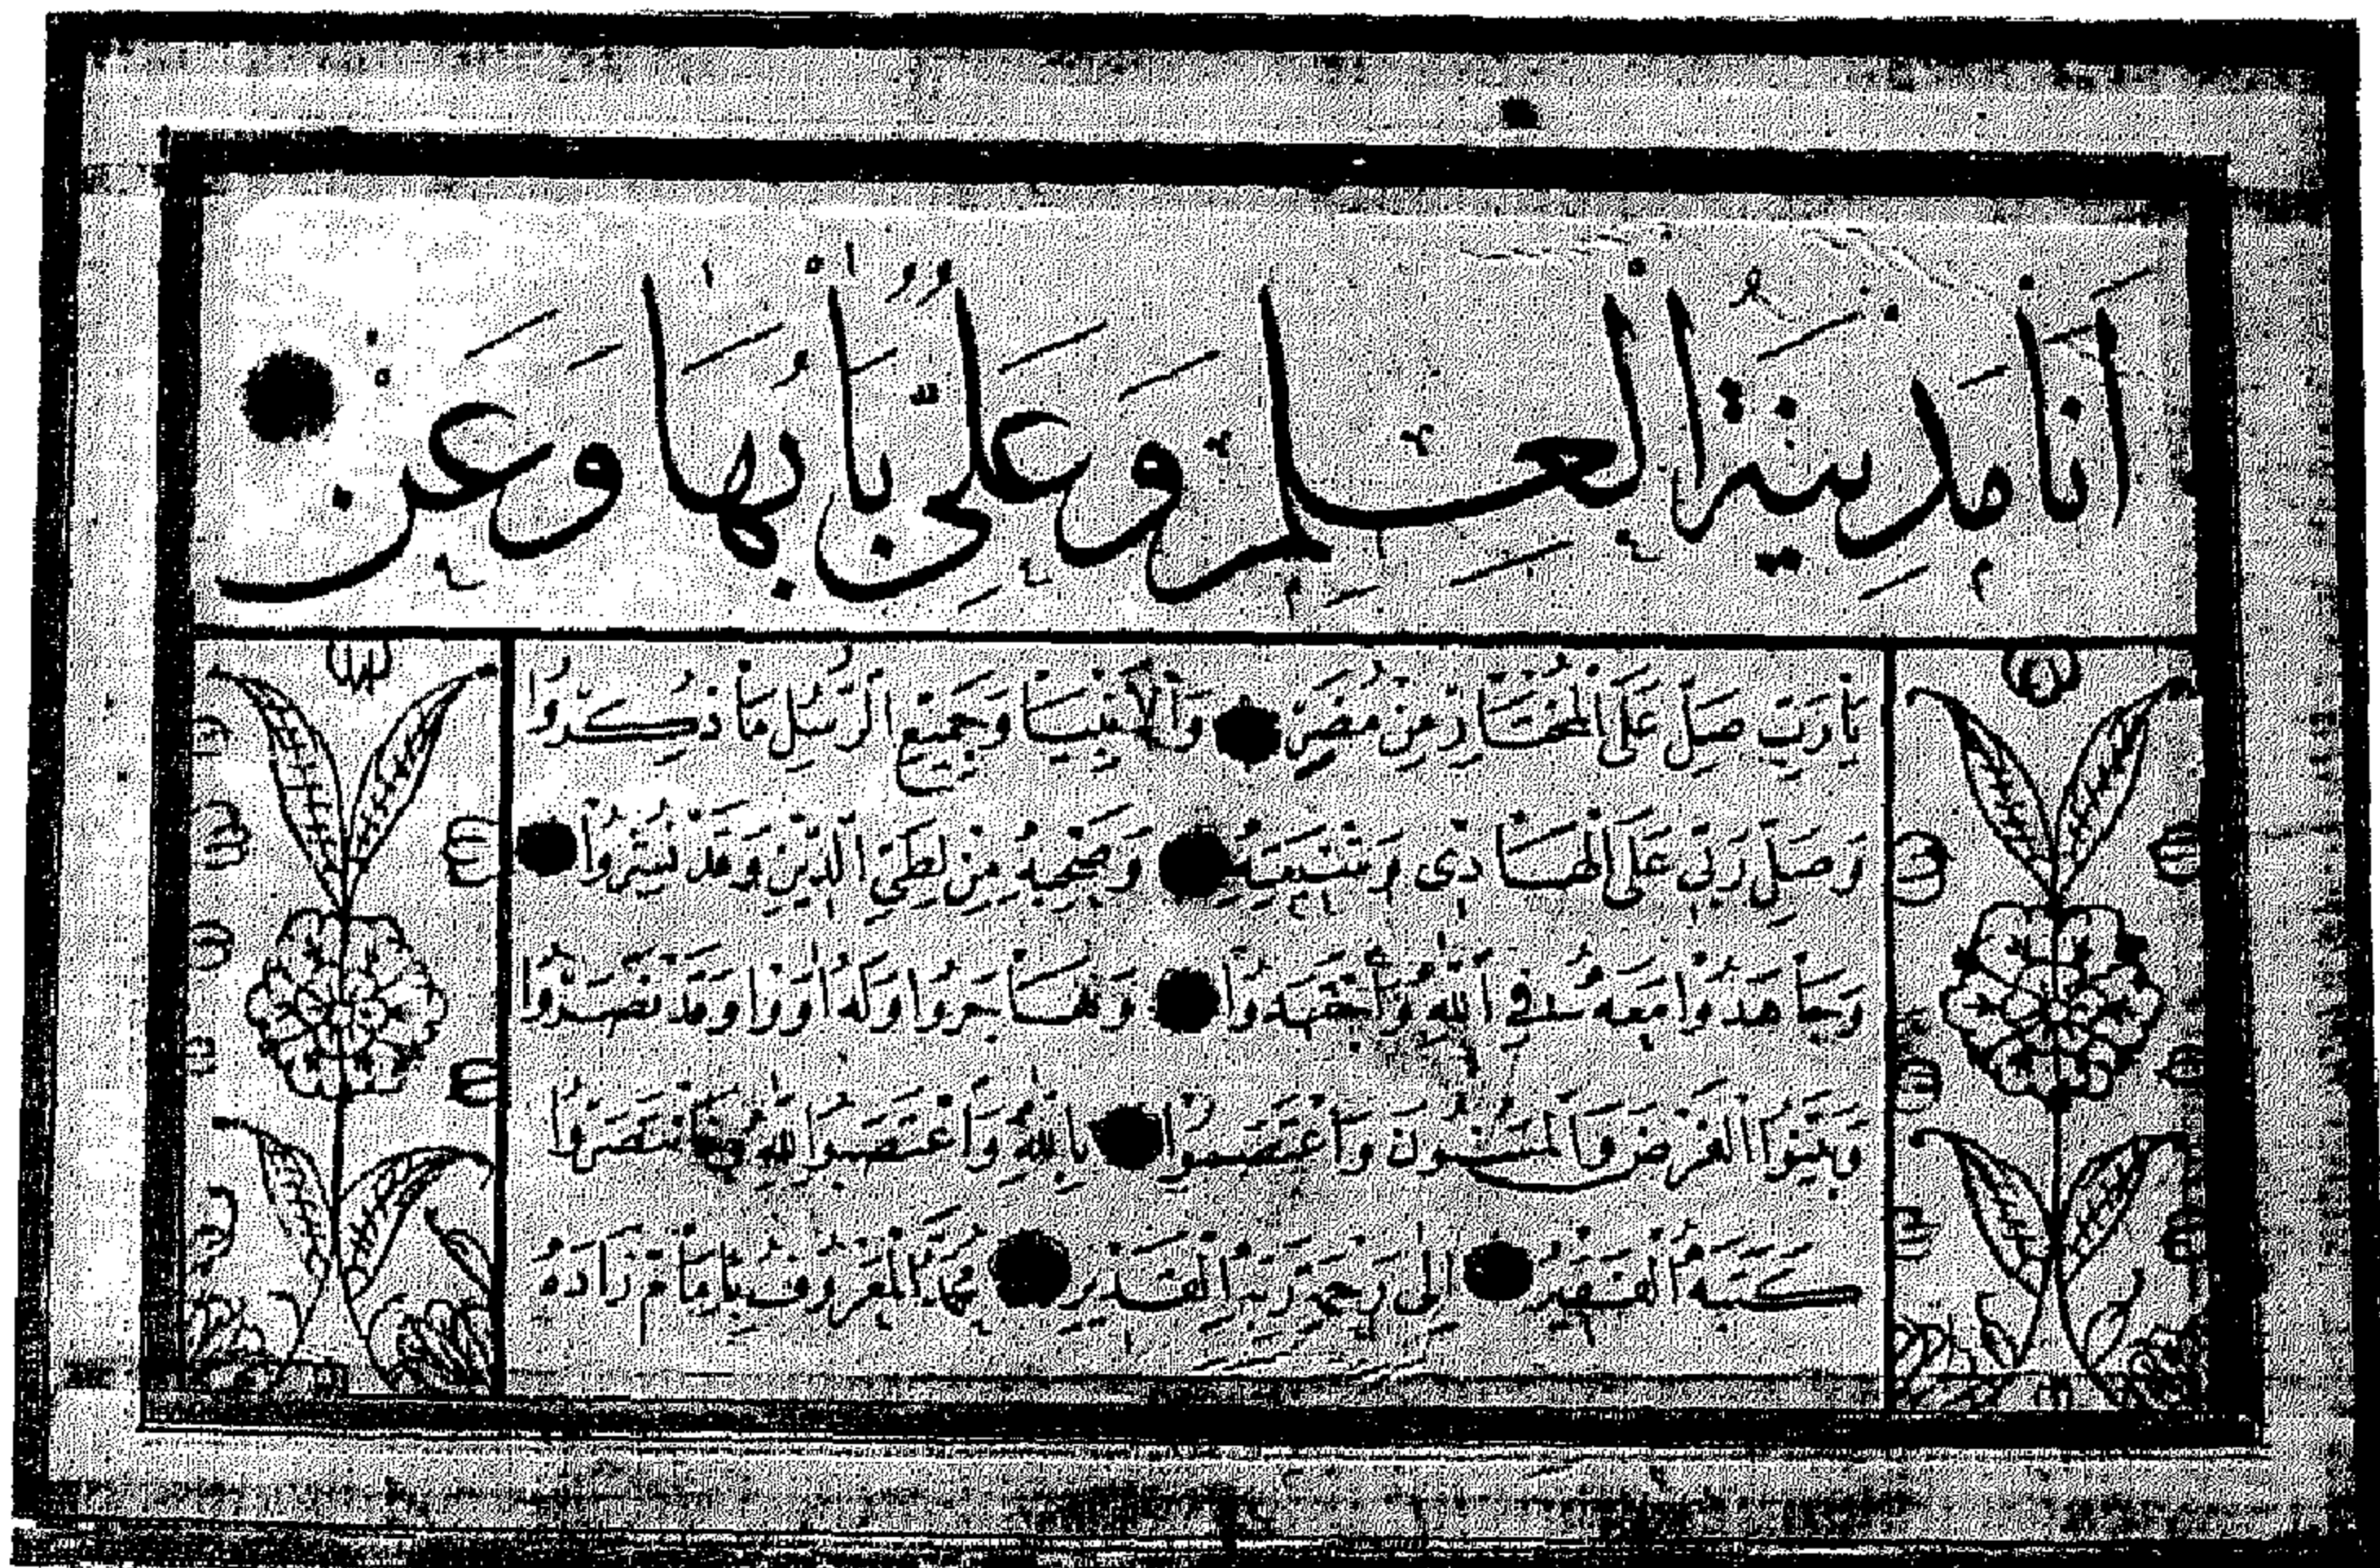 اَنَا مَدِينَةُ الْعِلْمِ وَعَلِيٌّ بَابُهَا وَعَنْ
يَا رَبِّ صَلِّ عَلَى الْمُخْتَارِ مِنْ مُضَرٍ وَالْاَنْبِيَا وَجَمِيعِ الرُّسْلِ مَا ذُكِرُوا
وَصَلِّ رَبِّي عَلَى الْهَادِي وَشِيعَتِهِ وَصَحْبِهِ مِنْ لِطَيِّ الدِّينِ وَقَدْ نُشِرُوا
وَجَاهَدُوا مَعَهُ فِي اللهِ وَاجْتَهَدُوا وَهَاجَرُوا وَلَهُ اٰوَوْا وَقَدْ نَصَرُوا
وَبَيَّنُوا الْفَرْضَ وَالْمَسْنُونَ وَاعْتَصَمُوا بِاللهِ وَاعْتَصَبُوا لِلهِ فَانْتَصَرُوا
كَتَبَهُ الْفَقِيرُ اِلٰى رَحْمَةِ رَبِّهِ الْقَدِيرِ مُحَمَّدُ الْمَعْرُوفُ بِاِمَامْ زَادَهْ